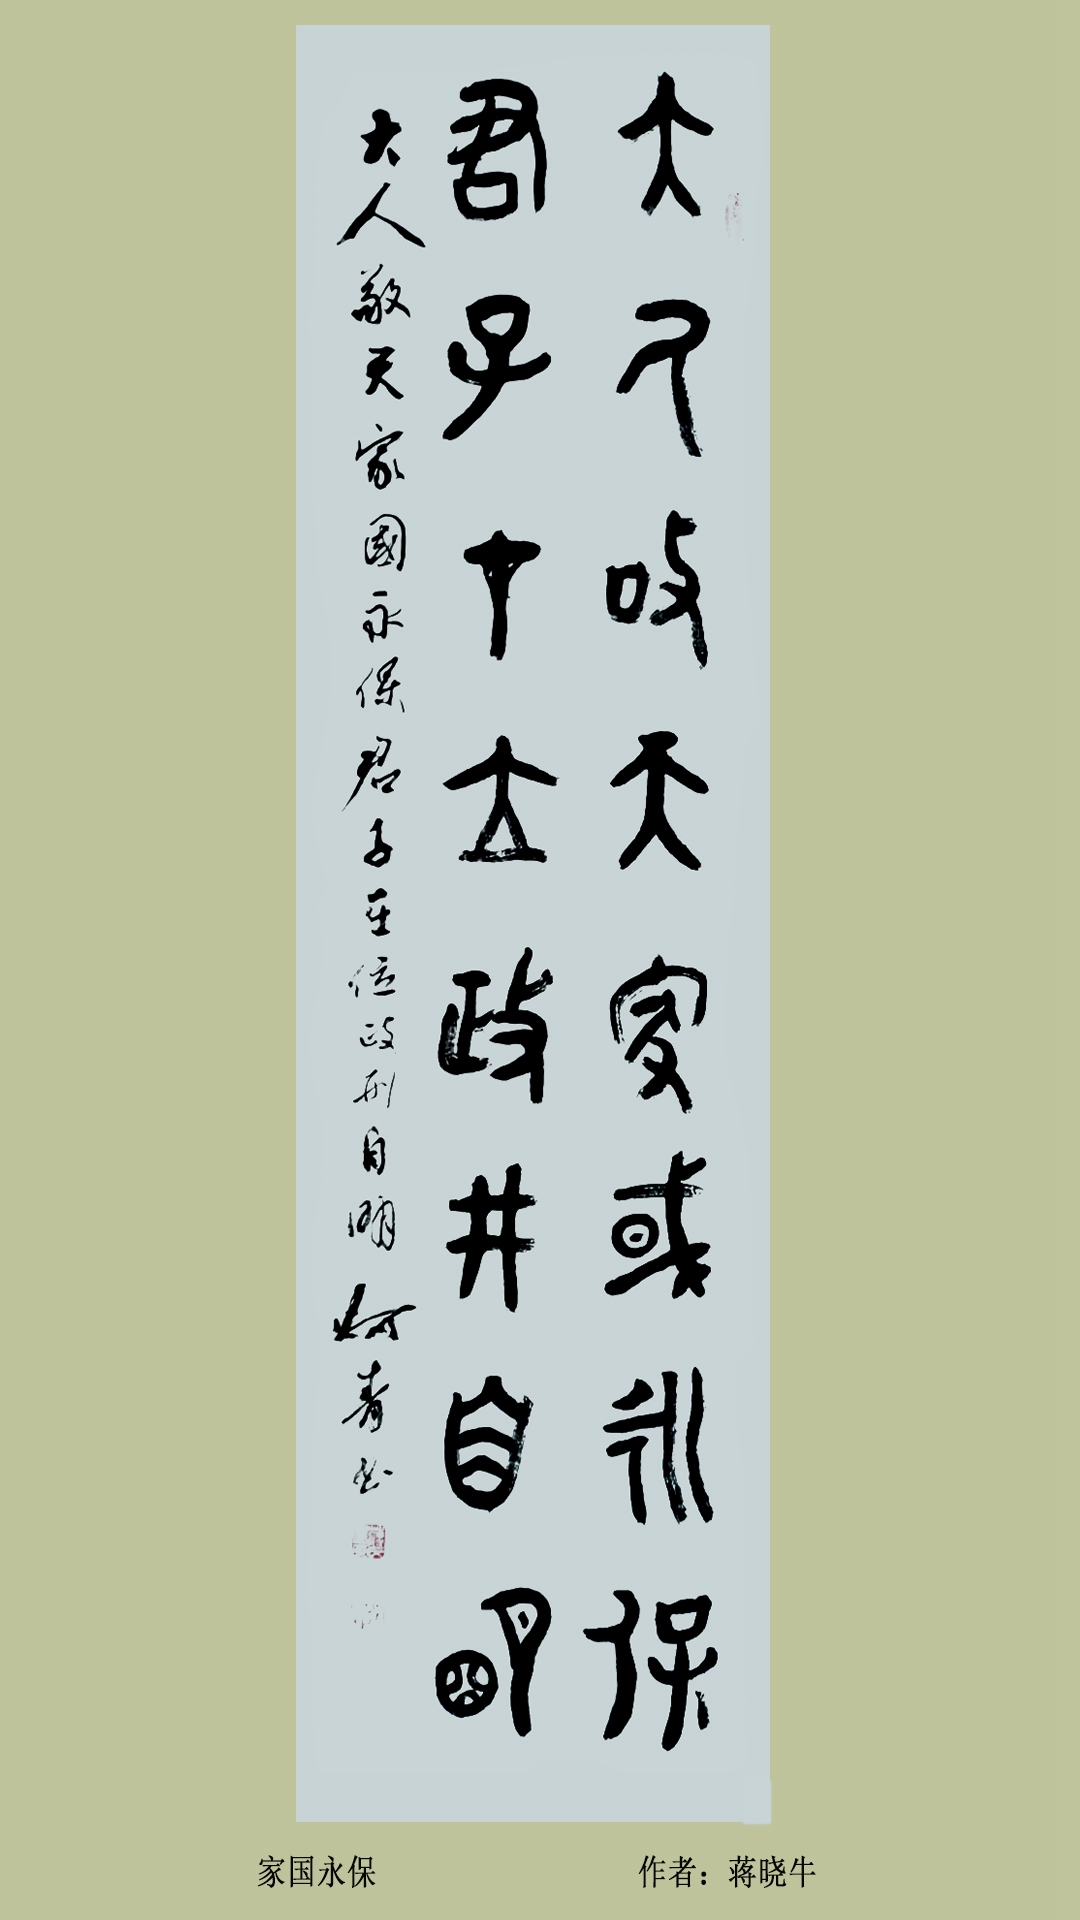 大人敬天家或永保
君子才立政井自明
大人敬天家國永保君子在位政刑自明
青书
家国永保
作者：蒋晓牛